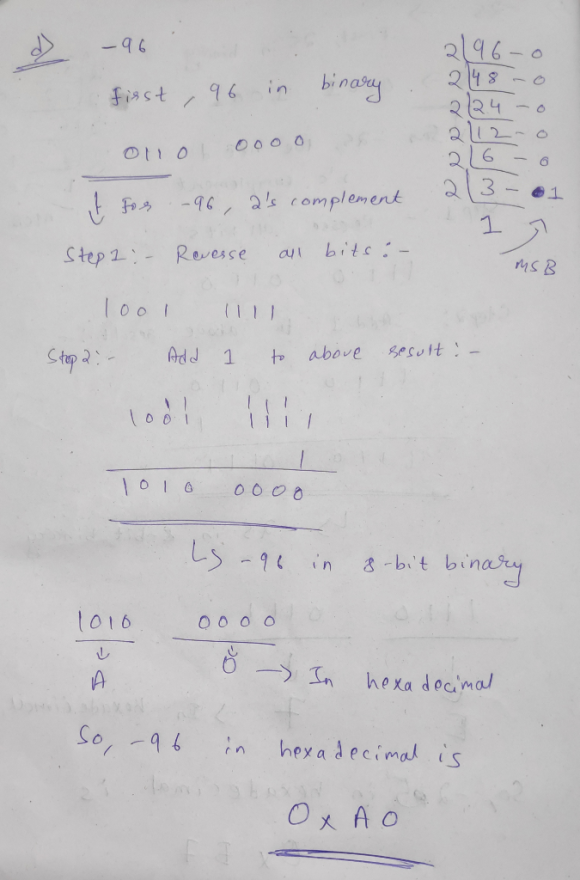 d) -96
2 | 96 - 0
2 | 48 - 0
2 | 24 - 0
2 | 12 - 0
2 | 6 - 0
2 | 3 - 1
1
MSB
First, 96 in binary
0110 0000
↓ For -96, 2's complement
Step 1:- Reverse all bits:-
1001 1111
Step 2:- Add 1 to above result:-
11 111
1001 1111
1
1010 0000
↳ -96 in 8-bit binary
1010 0000
↓ ↓
A 0 → In hexadecimal
So, -96 in hexadecimal is
0xA0